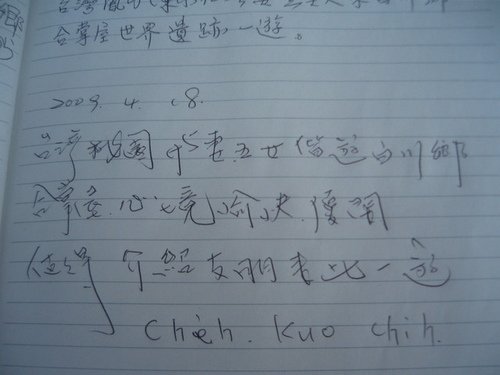 台灣
合掌屋世界遺跡一遊。
2009. 4. 18.
台灣桃園 五女偕遊白川鄉
合掌屋.心境愉快.優閒
值得介紹友朋來此一遊
Chieh. Kuo Chih.